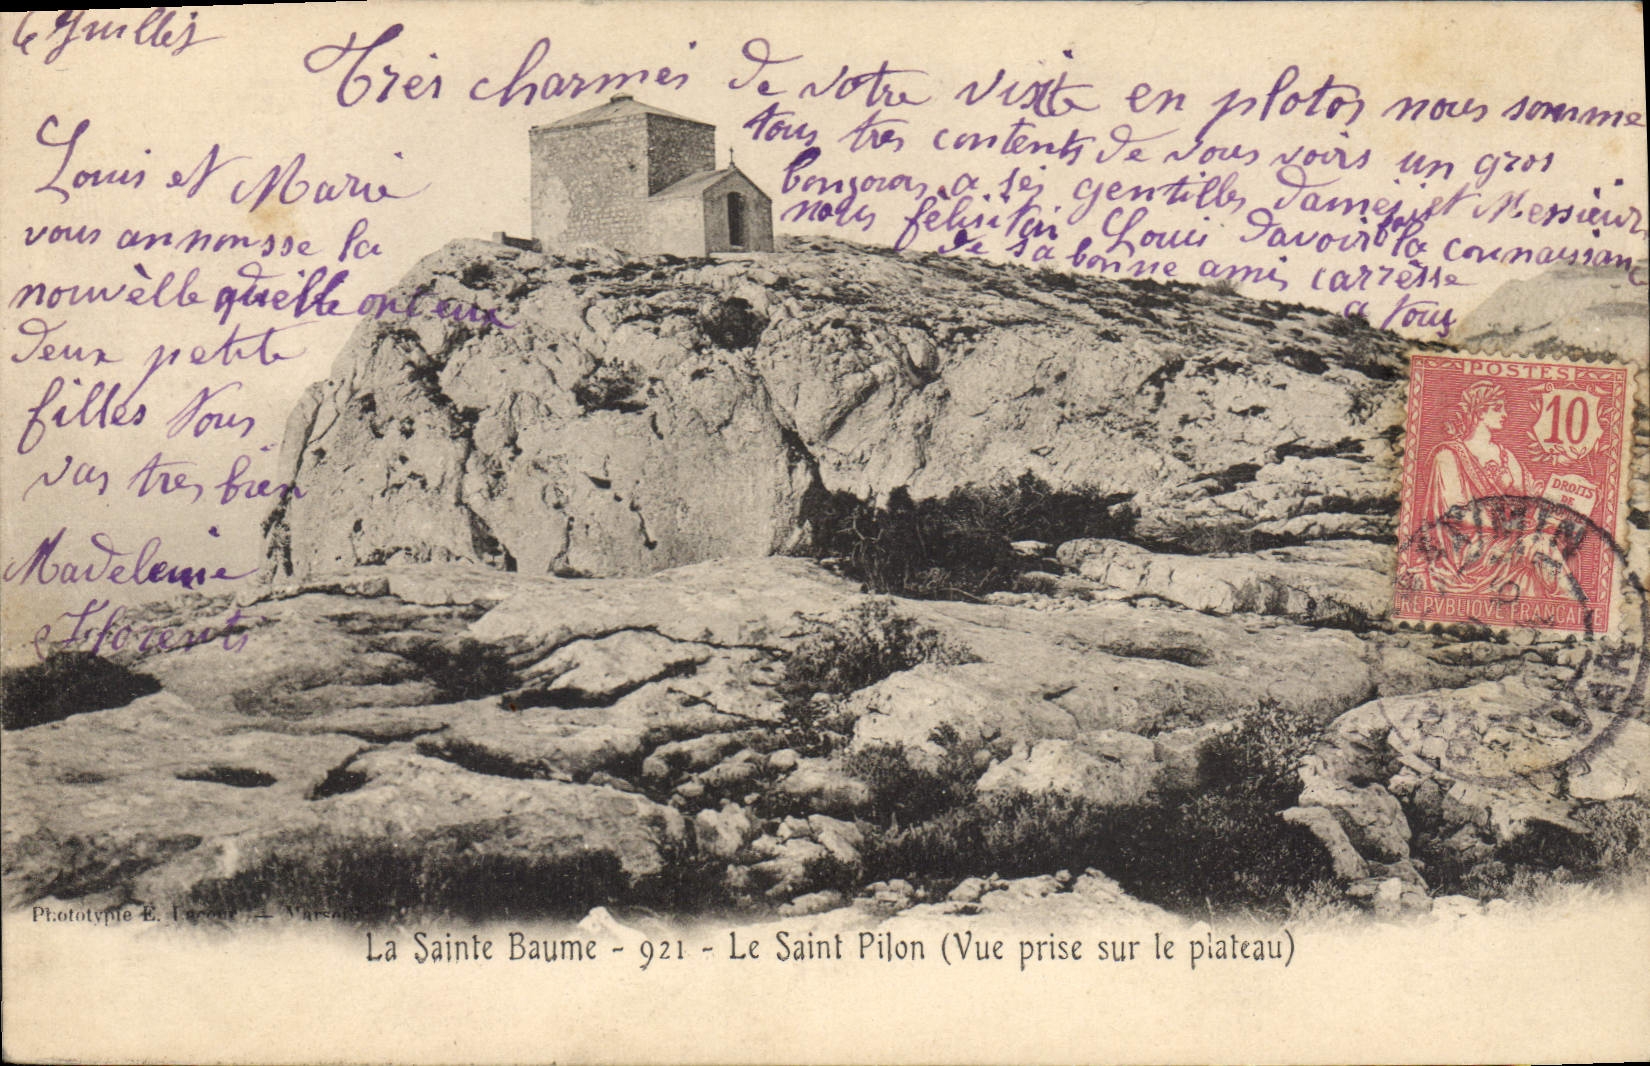 6 Juillet
Très charmés de votre visite en photos nous somme
tous tres contents de vous voirs un gros
bonjour a ses gentilles dames et Messieurs
nous félisiton Louis davoir fait la connaissance
de sa bonne amis carrèsse
a tous
Louis et Marie
vous annonsse la
nouvèlle quielle ont eux
deux petite
filles tous
vas tres bien
Madeleine
et Florents
POSTES
10
DROITS
DE
REPVBLIQVE FRANÇAISE
Phototypie E. Lacour — Marseille
La Sainte Baume - 921 - Le Saint Pilon (Vue prise sur le plateau)